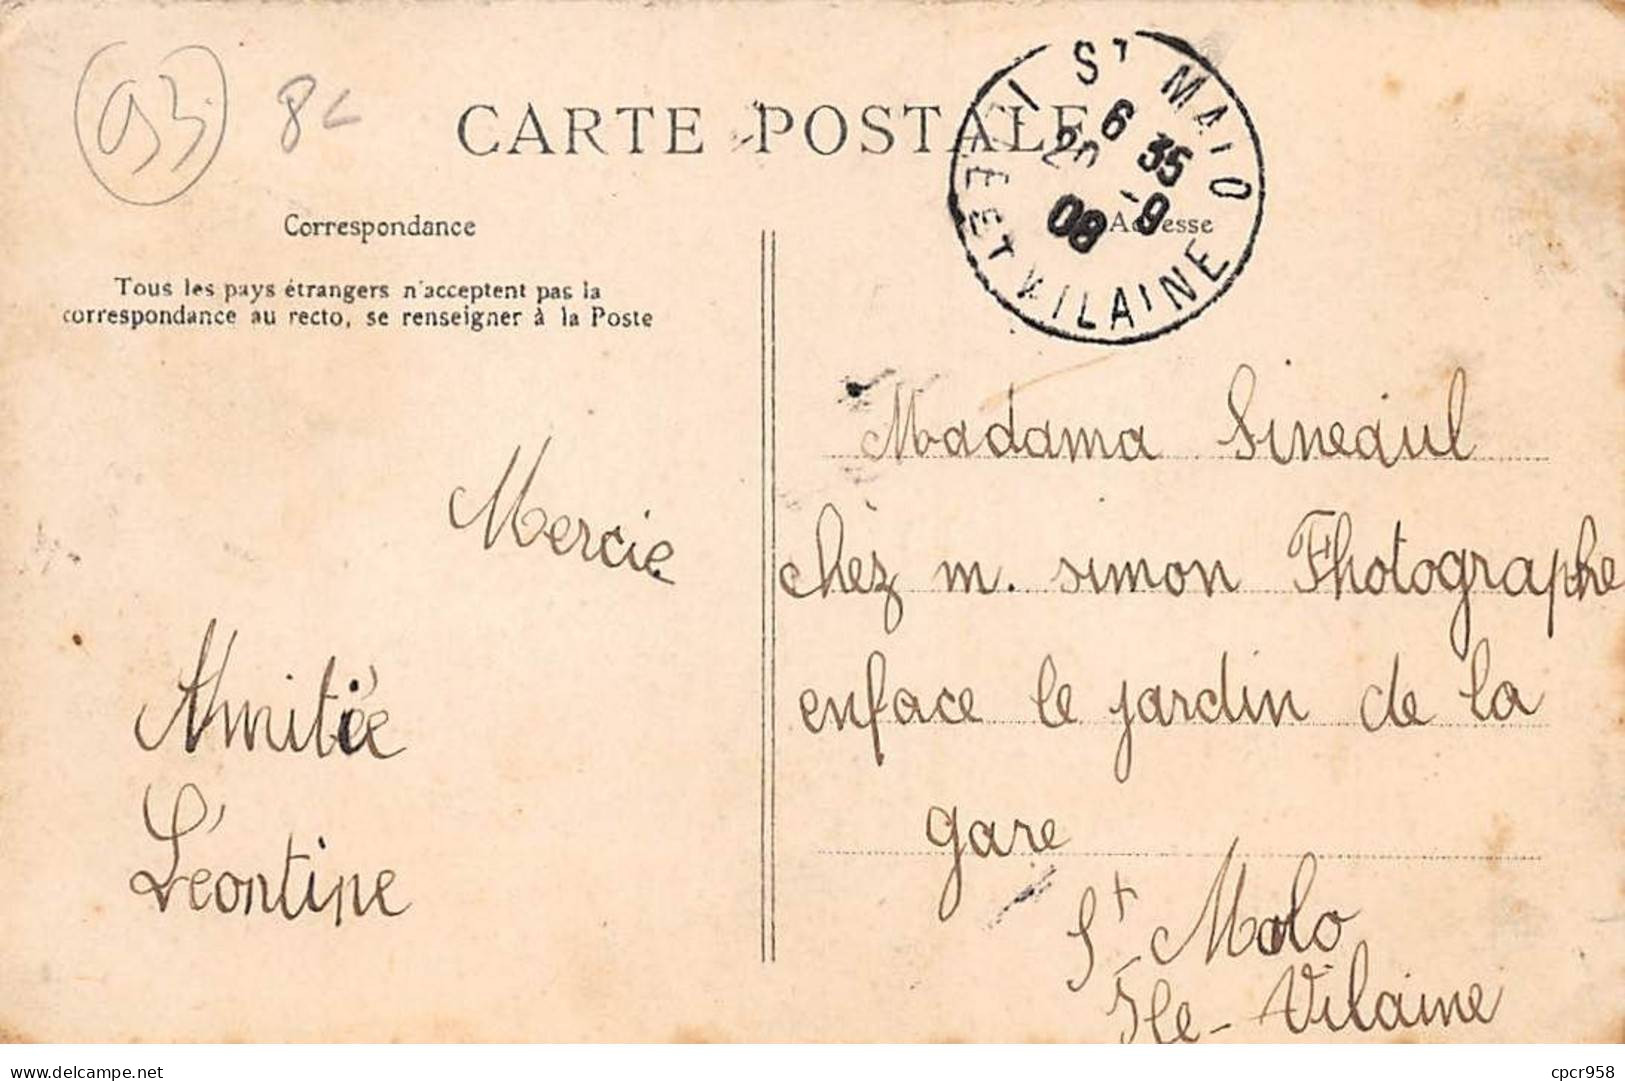 93
8
CARTE POSTALE
ST MALO
ILLE ET VILAINE
6 35
20 -9
08
Correspondance
Adresse
Tous les pays étrangers n'acceptent pas la
correspondance au recto, se renseigner à la Poste
Mercie
Amitiée
Léontine
Madama Sineaul
chèz m. simon Fhotographe
enface le jardin de la
gare
St Malo
Ile-Vilaine
delcampe.net
cpcr958